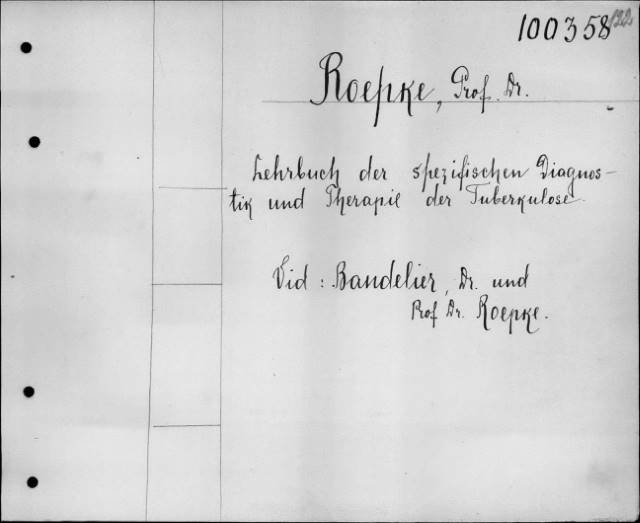 100358
Roepke, Prof. Dr.
Lehrbuch der spezifischen Diagnos-
tik und Therapie der Tuberkulose.
Vid: Bandelier, Dr. und
Prof Dr. Roepke.